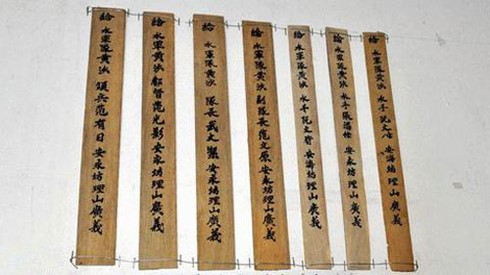 給 水軍隊黃沙 兵范有日 安永坊理山廣義
給 水軍隊黃沙 都督范光影 安永坊理山廣義
給 水軍隊黃沙 隊長武文 安永坊理山廣義
給 水軍隊黃沙 副隊長范文原 安永坊理山廣義
給 水軍隊黃沙 水手 阮文 安海坊理山廣義
給 水軍隊黃沙 水手 張 安永坊理山廣義
給 水軍隊黃沙 水手 阮文 安海坊理山廣義